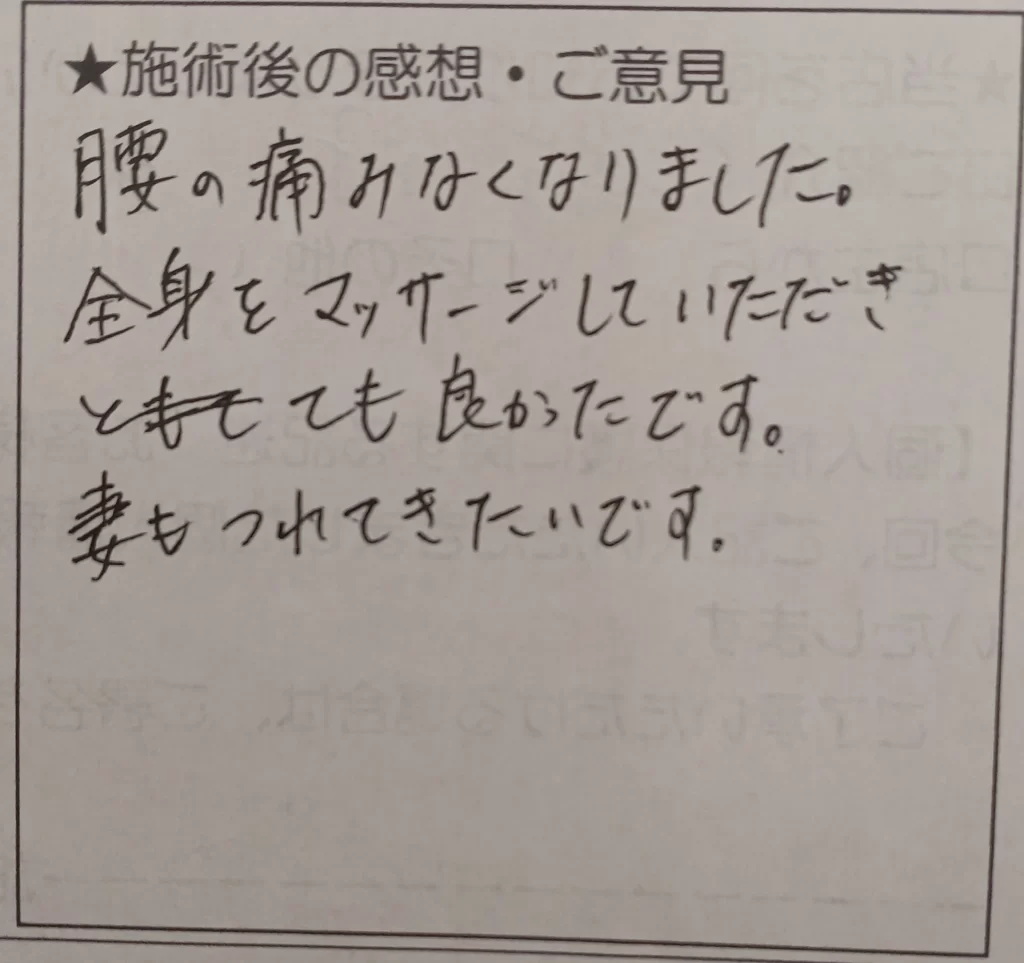 ★施術後の感想・ご意見
腰の痛みなくなりました。
全身をマッサージしていただき
とても良かったです。
妻もつれてきたいです.